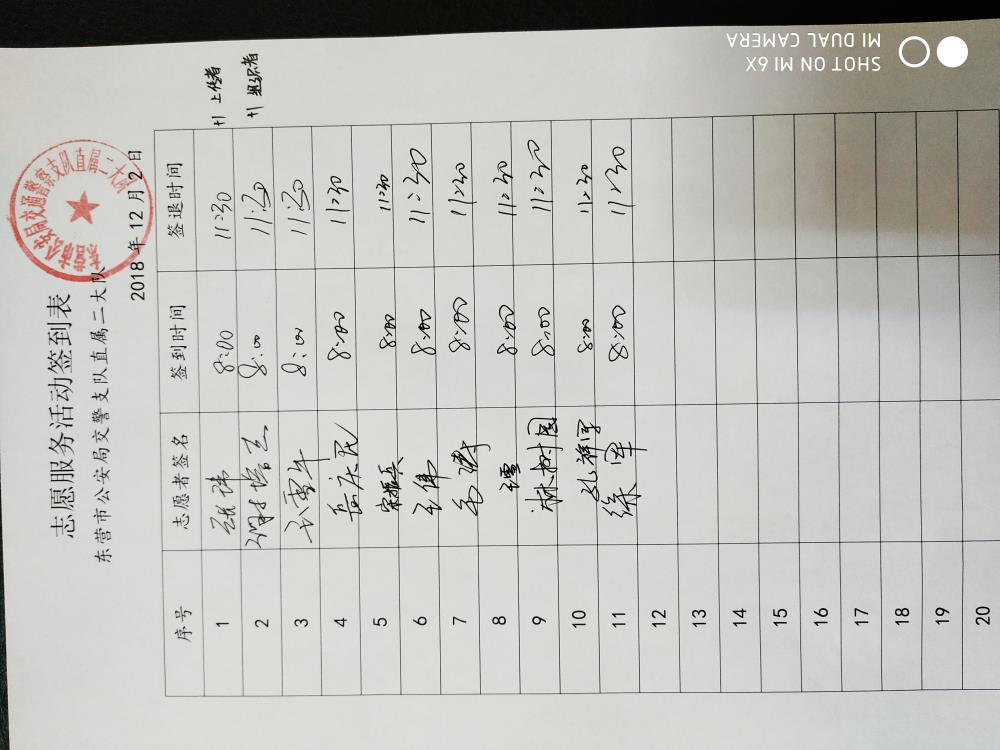 志愿服务活动签到表
东营市公安局交警支队直属二大队
2018 年 12 月 2 日
序号 志愿者签名 签到时间 签退时间
1 8:00 11:30 +1 上传者
2 8:00 11:30 +1 组织者
3 8:00 11:30
4 岳庆民 8:00 11:30
5 宋振兵 8:00 11:30
6 王伟 8:00 11:30
7 8:00 11:30
8 8:00 11:30
9 林树国 8:00 11:30
10 孔祥军 8:00 11:30
11 徐军 8:00 11:30
12
13
14
15
16
17
18
19
20
SHOT ON MI 6X
MI DUAL CAMERA